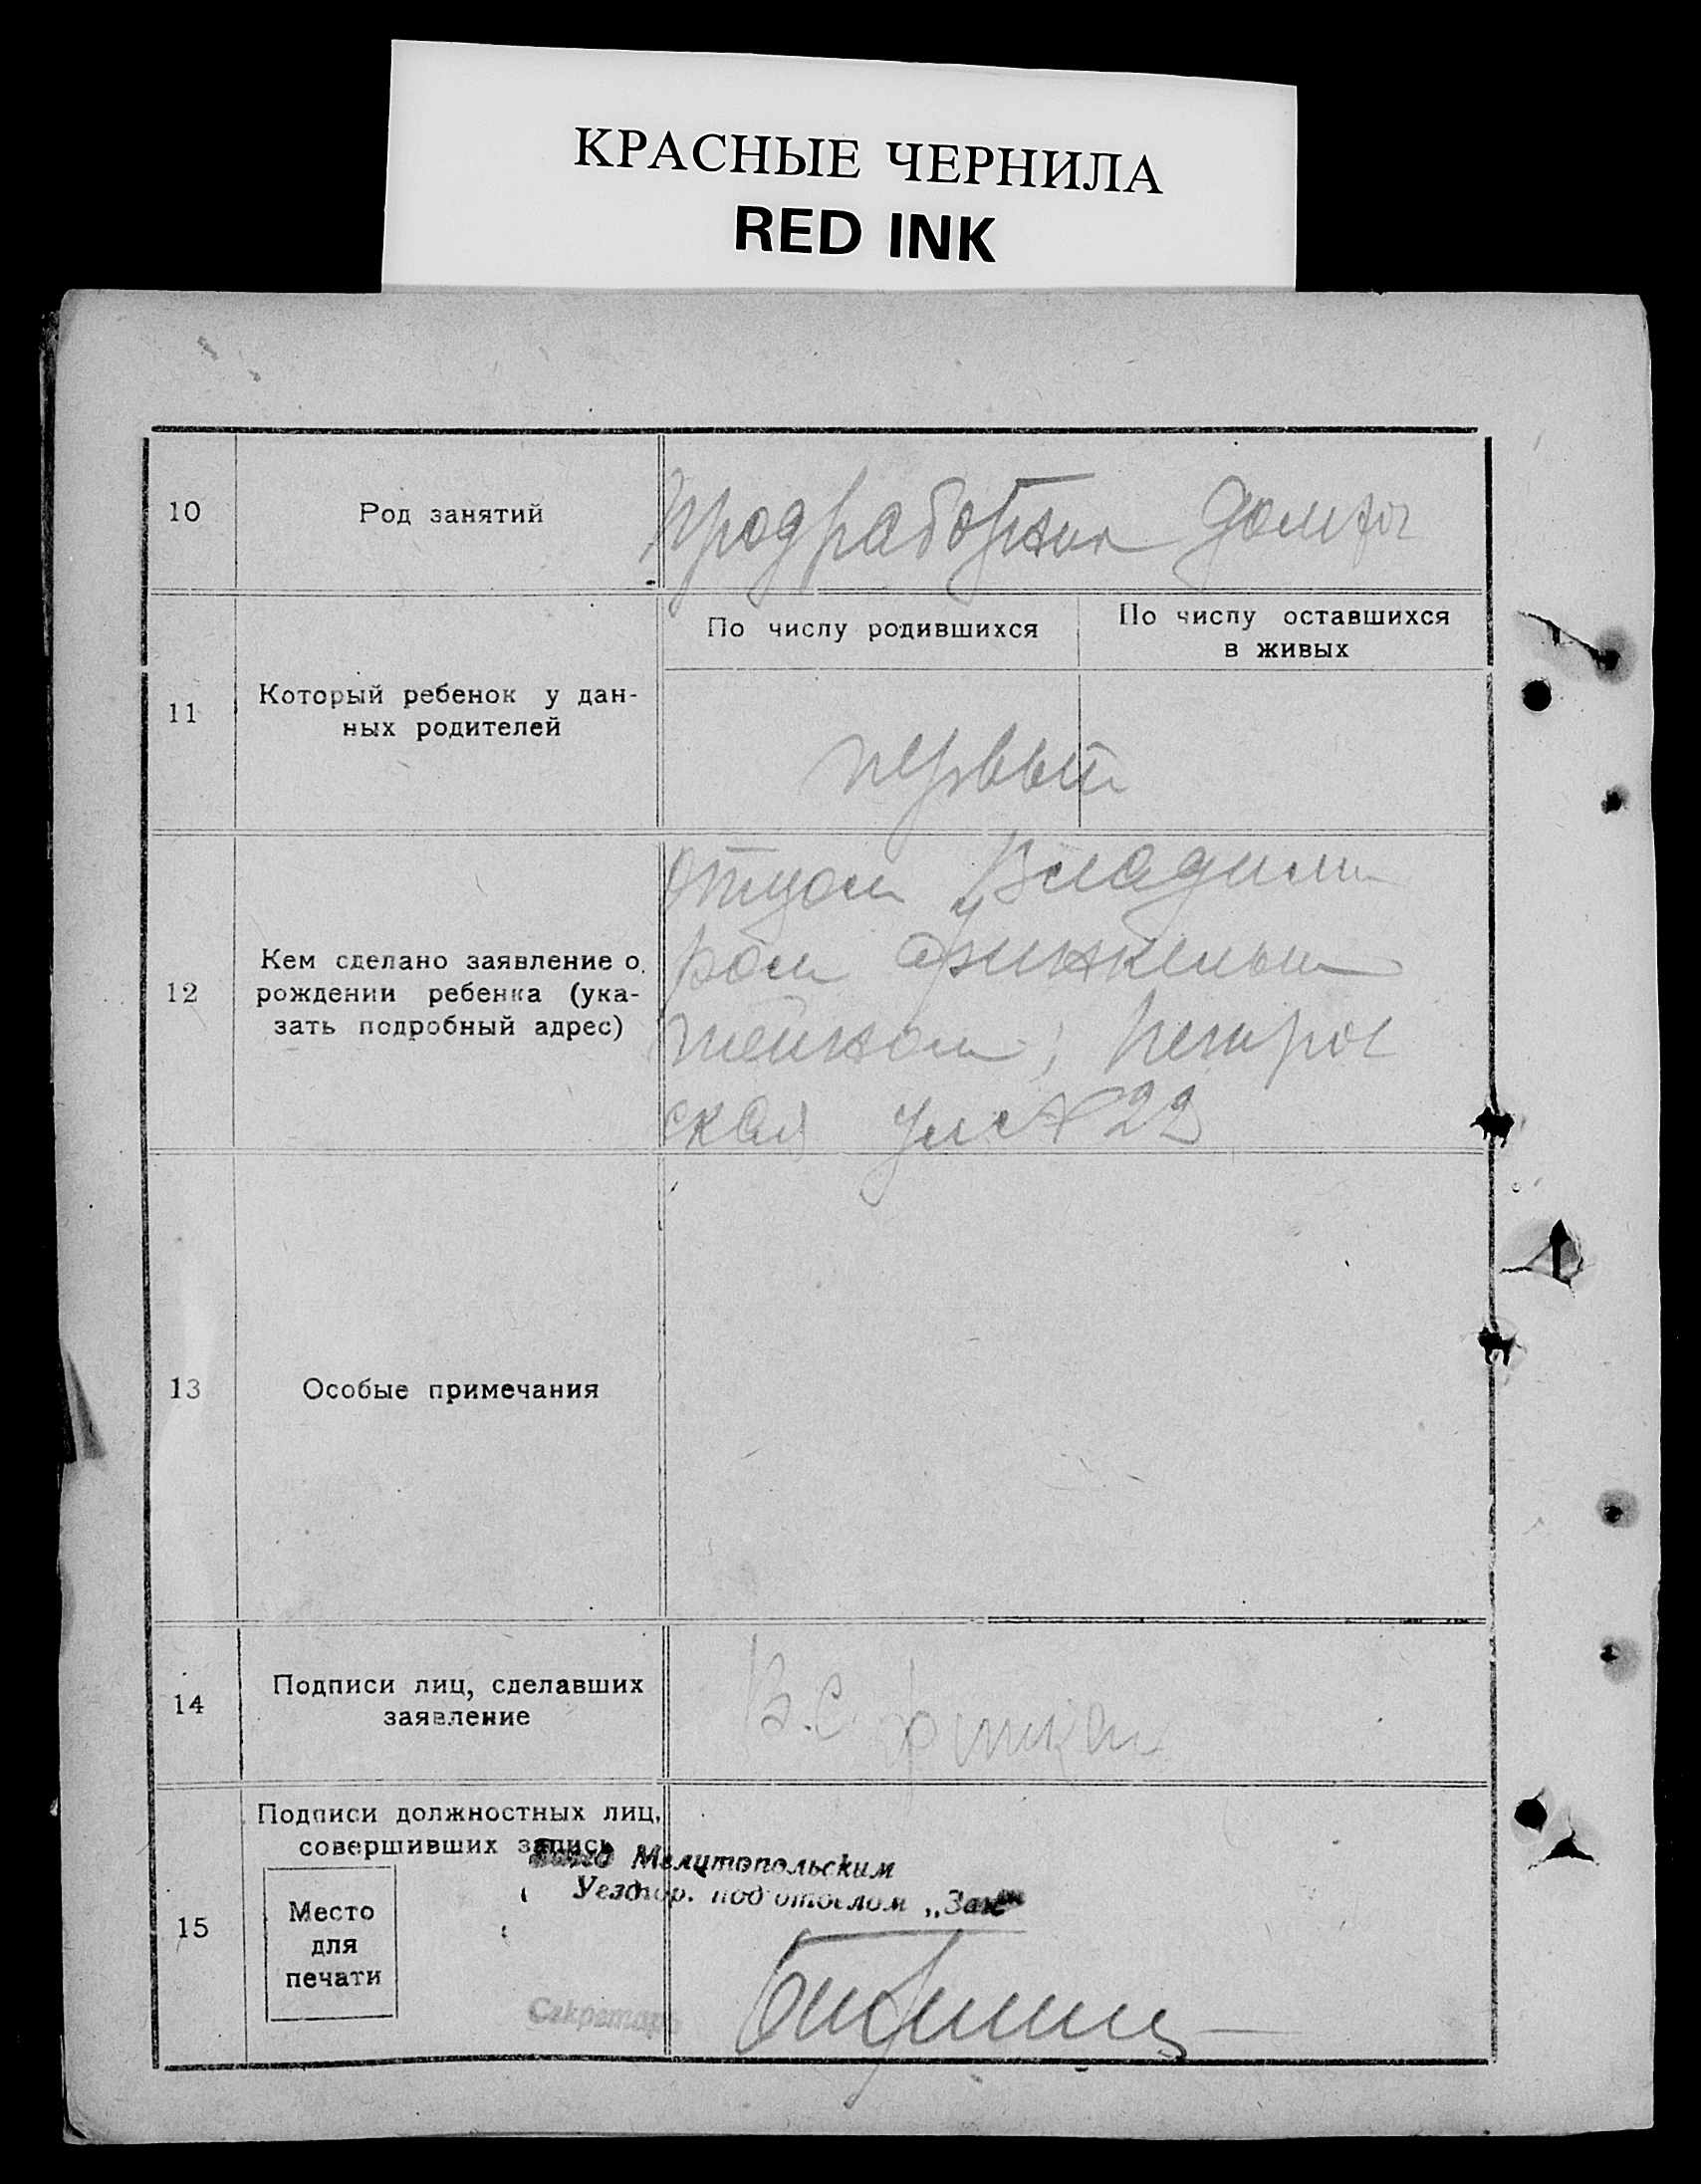 КРАСНЫЕ ЧЕРНИЛА
RED INK
10
Род занятий
продработник
11
Который ребенок у дан-
ных родителей
По числу родившихся
По числу оставшихся
в живых
первый
12
Кем сделано заявление о
рождении ребенка (ука-
зать подробный адрес)
отцом Владими
ром Финкельш
тейном, 
ская ул № 22
13
Особые примечания
14
Подписи лиц, сделавших
заявление
В.С.
15
Подписи должностных лиц,
совершивших запись
Место
для
печати
Мелитопольским
Уездгор. подотделом „Загс"
Секретарь